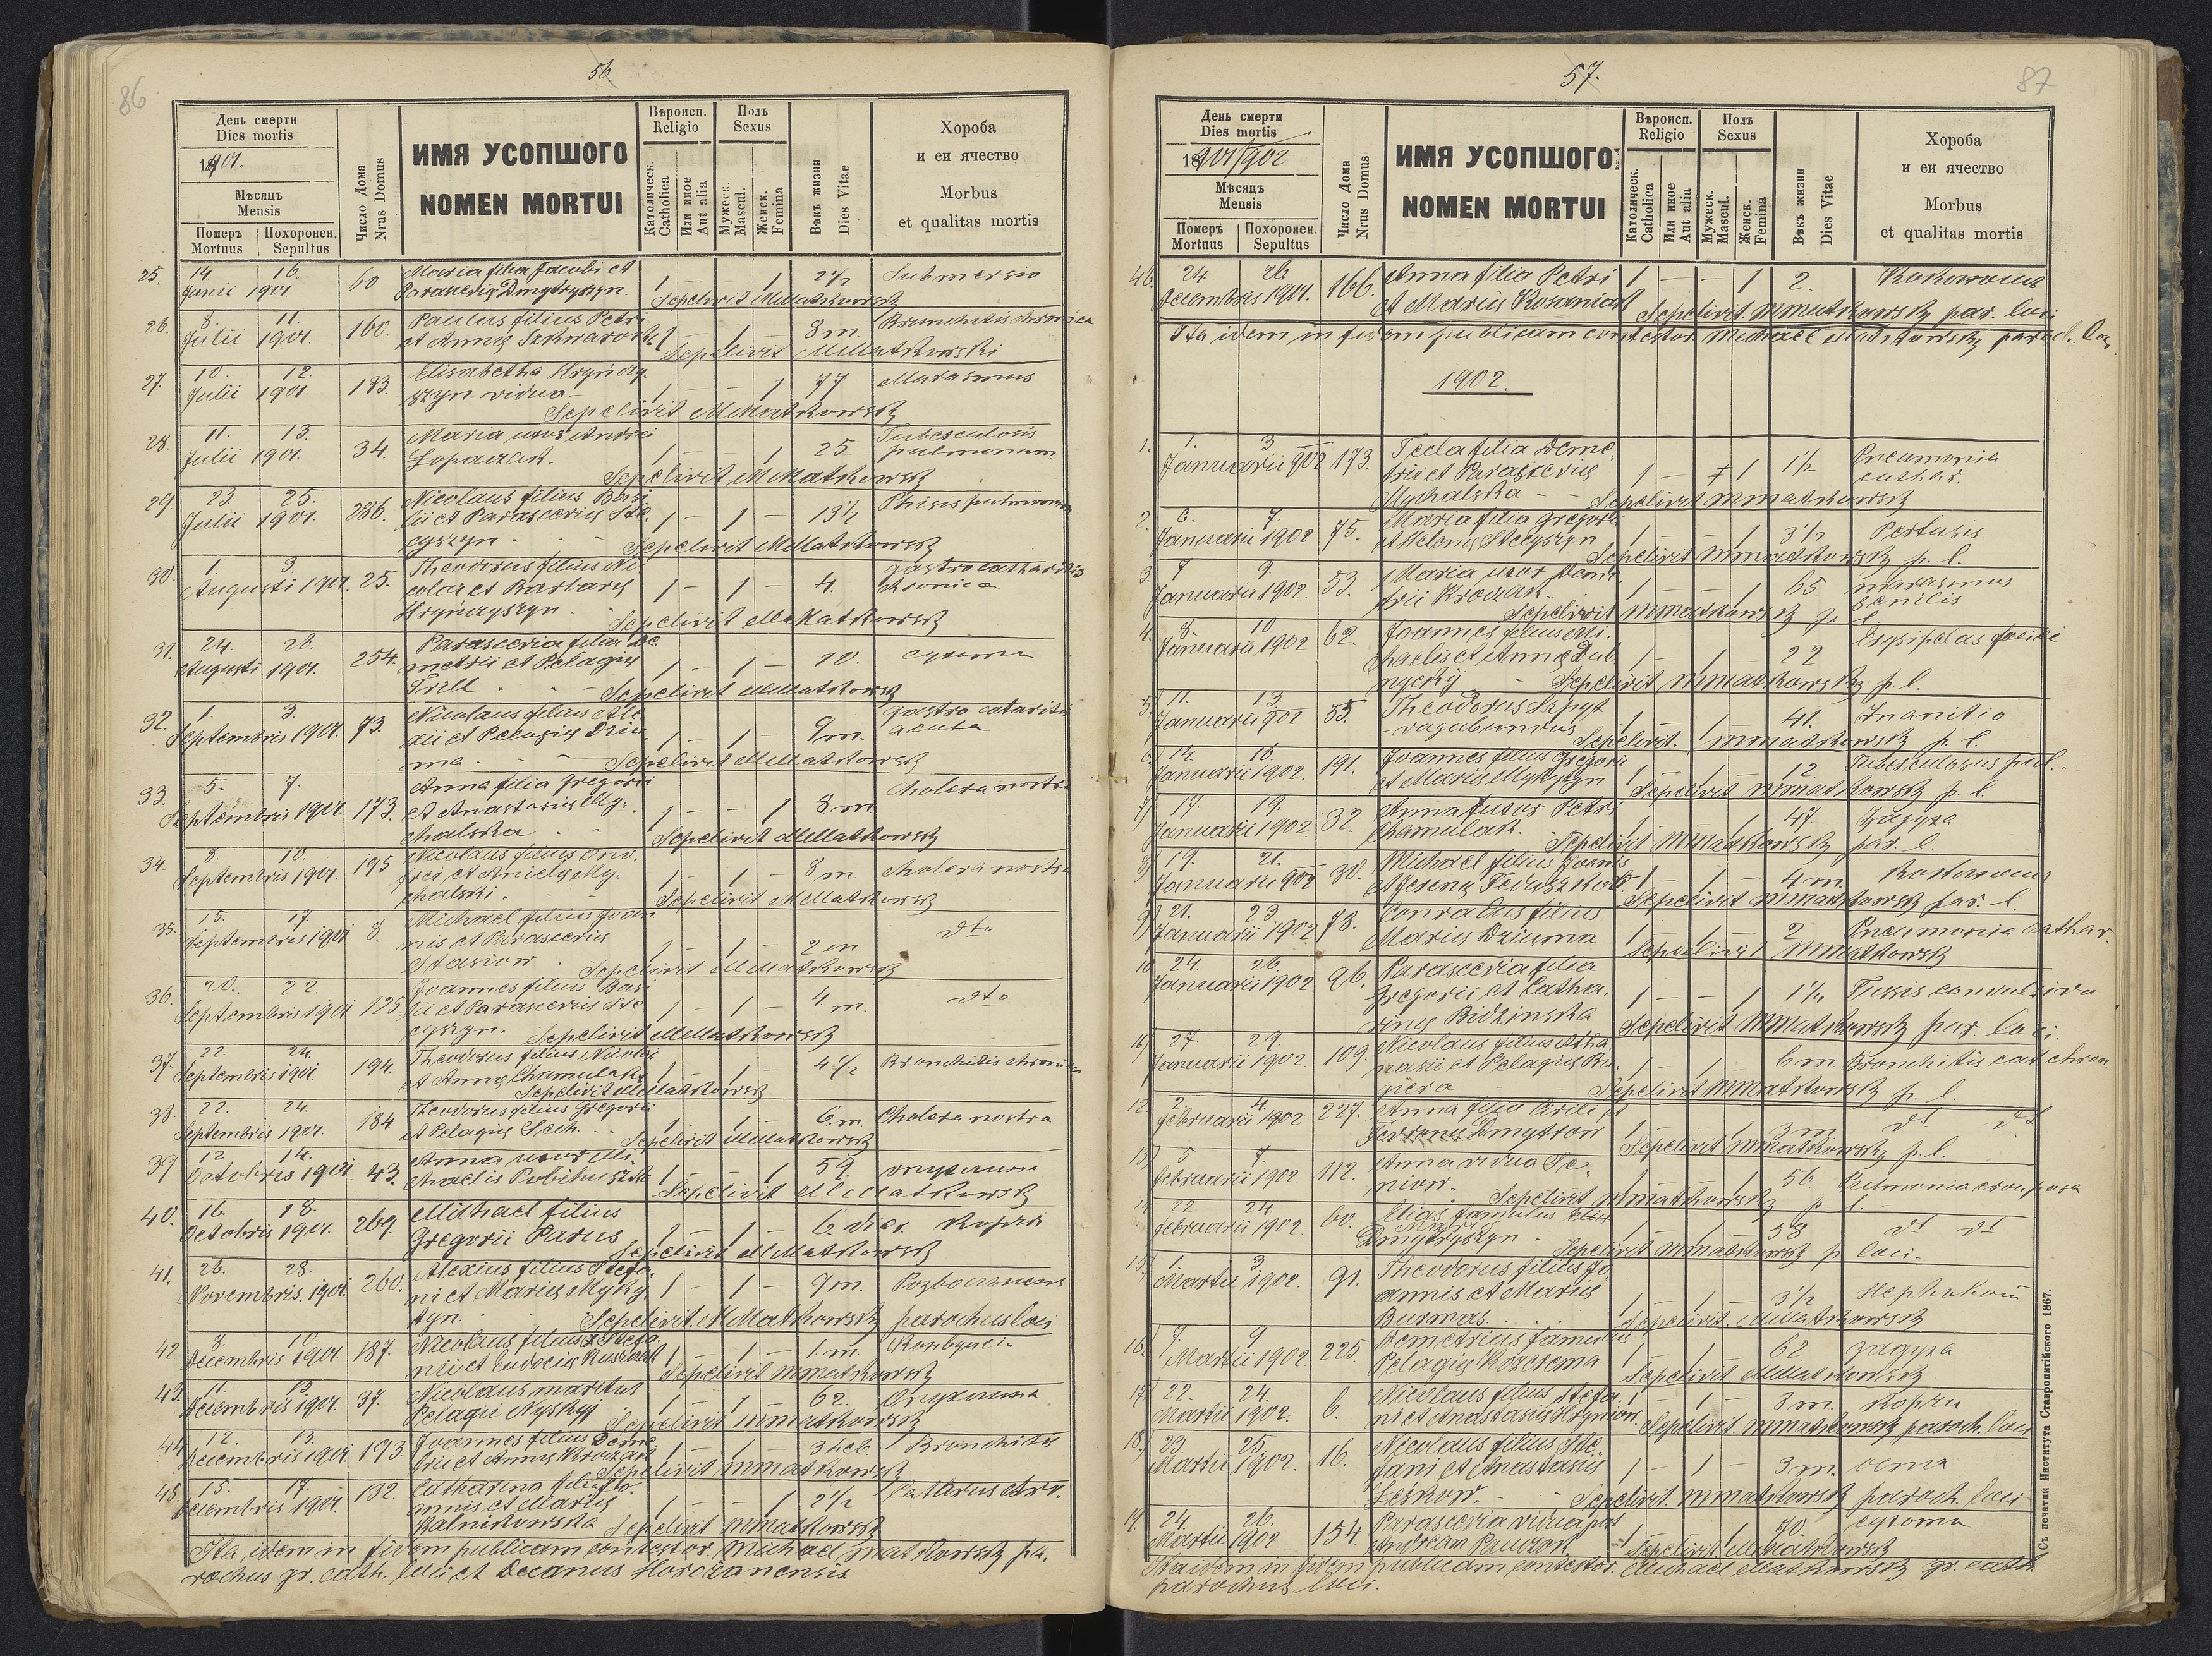 86
56
День смерти
Dies mortis
1901.
Мѣсяцъ
Mensis
Померъ
Mortuus
Похоронен.
Sepultus
Число Дома
Nrus Domus
ИМЯ УСОПШОГО
NOMEN MORTUI
Вѣроисп.
Religio
Католическ.
Catholica
Или иное
Aut alia
Полъ
Sexus
Мужеск.
Mascul.
Женск.
Femina
Вѣкъ жизни
Dies Vitae
Хороба
и еи ячество
Morbus
et qualitas mortis
25. 14. 16. 60 Maria filia Jacobi et 1 - - 1 2 1/2 Submersio
Junii 1901. Parascevię Dmytryszyn. Sepelivit MMatkowsky
26. 8. 11. 160. Paulus filius Petri 1 - 1 - 8 m Bronchitis chronica
Julii 1901. et Annę Sepelivit MMatkowski
27. 10. 12. 133. Elisabetha Hryńczy- 1 - - 1 77 Marasmus
Julii 1901. szyn vidua - Sepelivit MMatkowsky
28. 11. 13. 34. Maria uxor Andrei 1 - - 1 25 Tuberculosis
Julii 1901. Łopaczak. pulmonum
Sepelivit MMatkowsky
29. 23. 25. 286. Nicolaus filius Basi- 1 - 1 - 13 1/2
Julii 1901. lii et Parascevię Ste-
cyszyn. Sepelivit MMatkowsky
30. 1. 3. 25. Theodorus filius Ni- 1 - 1 - 4.
Augusti 1901. colai et Barbarę chronica
Hryńczyszyn. Sepelivit MMatkowsky
31. 24. 26. 254. Parascevia filia De- 10.
Augusti 1901. metrii et Pelagię
Trill Sepelivit MMatkowsky
32. 1. 3. 73. Nicolaus filius Ale- 1 - 1 - 9 m. gastro
Septembris 1901. xii et Pelagię Dziu- acuta
ma - Sepelivit MMatkowsky
33. 5. 7. 173. Anna filia Gregorii 1 - - 1 8 m Cholera nostra
Septembris 1901. et Anastasię My-
chalska Sepelivit MMatkowsky
34. 8. 10. 195 Nicolaus filius Ono- 1 - 1 - 8 m. cholera nostra
Septembris 1901. frei et Anielę My-
chalski. Sepelivit MMatkowsky
35. 15. 17. 8. Michael filius Joan- 1 - 1 - 2 m dto
Septembris 1901 nis et Parascevię
Stasiow. Sepelivit MMatkowsky
36. 20. 22. 125 Joannes filius Basi- 1 - 1 - 4 m. dto
Septembris 1901 lii et Parascevię Ste-
cyszyn. Sepelivit MMatkowsky
37. 22. 24. 194. Theodorus filius Nicolai 1 - 1 - 4 1/2 Bronchitis chronica
Septembris 1901. et Annę Chamulak
Sepelivit MMatkowsky
38. 22. 24. 184 Theodorus filius Gregorii 1 1 6 m. Cholera nostra
Septembris 1901. et Pelagię Sepelivit MMatkowsky
39 12 14. 43. Anna uxor Mi- 1 1 59 опухлина
Octobris 1901. chaelis Sepelivit MMatkowsky
40. 16. 18. 269. Michael filius 1 - 1 - 6 dies
Octobris 1901. Gregorii Parus Sepelivit MMatkowsky
41. 26. 28. 260. Alexius filius Stefa- 1 - 1 - 9 m.
Novembris. 1901. ni et Marię Myky-
tyn. Sepelivit. MMatkowsky parochus loci
42. 8. 10. 187. Nicolaus filius Stefa- 1 - 1 - 1 m.
Decembris 1901. ni et Eudocię Sepelivit MMatkowsky
43. 11. 13. 37. Nicolaus maritus 1 1 62. Опухлина
Decembris 1901. Pelagii Nyskyj Sepelivit MMatkowsky
44. 12. 13. 193 Joannes filius Deme- 1 - 1 - Bronchitis
Decembris 1901. trii et Annę Kroczak
Sepelivit MMatkowsky
45. 15. 17. 132. Catharina filia Jo- 1 - - 1 2 1/2
Decembris 1901. annis et Marię
Kalnikowska Sepelivit MMatkowsky
Ita idem in fidem publicam contestor. Michael Matkowsky pa-
rochus gr. cath. loci et Decanus Horożanensis
87
57.
День смерти
Dies mortis
18901/902
Мѣсяцъ
Mensis
Померъ
Mortuus
Похоронен.
Sepultus
Число Дома
Nrus Domus
ИМЯ УСОПШОГО
NOMEN MORTUI
Вѣроисп.
Religio
Католическ.
Catholica
Или иное
Aut alia
Полъ
Sexus
Мужеск.
Mascul.
Женск.
Femina
Вѣкъ жизни
Dies Vitae
Хороба
и еи ячество
Morbus
et qualitas mortis
46. 24. 26. 166. Anna filia Petri 1 - - 1 2. Коклюшъ
Decembris 1901. et Marię Sepelivit MMatkowsky par. loci
Ita idem in fidem publicam contestor Michael Matkowsky paroch. loci.
1902.
1. 1. 3 173. Tecla filia Deme- 1 - 1 1 1/2 Pneumonia
Januarii 902 trii et Parascevię cathar.
Mychalska - - Sepelivit MMatkowsky
2. 6. 7. 75. Maria filia Gregorii 1 - - 1 3 1/2 Pertusis
Januarii 1902 et Helenę Stecyszyn Sepelivit MMatkowsky p. l.
3. 7 9. 53. Maria uxor Deme- 1 1 65 marasmus
Januarii 1902. trii Kroczak. senilis
Sepelivit MMatkowsky p. l.
4. 8. 10. 62. Joannes filius Mi- 1 - 1 - 22 Erysipelas faciei
Januarii 1902 chaelis et Annę Dub-
nyckyj Sepelivit MMatkowsky p. l.
5. 11. 13. 55. Theodorus 1 1 41. Inanitio
Januarii 902 - vagabundus Sepelivit. MMatkowsky p. l.
6. 14. 16. 191. Joannes filius Gregorii 1 1 12
Januarii 1902. et Marię Mykytyn Sepelivit MMatkowsky p. l.
7. 17. 19. 32. Anna uxor Petri 1 1 47 Задуха
Januarii 1902 Chamulak. Sepelivit MMatkowsky par. l.
8. 19. 21. 30. Michael filius Joannis 1 - 1 - 4 m. Коклюшъ
Januarii 902 et Irenę Sepelivit MMatkowsky par. l.
9. 21. 23. 78. Conradus filius 1 1 2 Pneumonia cathar.
Januarii 1902 Marię Dziuma Sepelivit MMatkowsky
10. 24. 26 96. Parascevia filia 1 - - 1 Tussis convulsiva
Januarii 1902 Gregorii et Catha-
rinę Bidzinska Sepelivit MMatkowsky par. loci.
11. 27. 29. 109. Nicolaus filius Atha- 1 - 1 6 m Bronchitis cat chron.
Januarii 1902. nasii et Pelagię
Sepelivit MMatkowsky p. l.
12. 2. 4. 227. Anna filia 3 m dt dt
Februarii 1902 Dmytrow Sepelivit MMatkowsky p. l.
13. 5 7. 112. Anna vidua Se- 1 1 56. Pulmonia crouposa
Februarii 1902 niow. Sepelivit MMatkowsky p. l.
14. 22 24. 60. Elias famulus 1 1 58 dt dt
Februarii 1902. Dmytryszyn - Sepelivit MMatkowsky p loci.
15. 1. 3. 91. Theodorus filius Jo- 1 - 1 - 3 1/2
Martii 1902. annis et Marię
Burmas. Sepelivit. MMatkowsky
16. 7. 9. 225. Demetrius famulus 1 1 62 задуха
Martii 1902 Pelagię Sepelivit MMatkowsky
17. 22. 24. 6. Nicolaus filius Stefa- 1 1 - 8 m. Кория
Martii 1902. ni et Anastasię Hryniow. Sepelivit. MMatkowsky paroch. loci
18. 23. 25. 16. Nicolaus filius Ste- 1 - 1 - 3 m. оспа
Martii 1902. fani et Anastasię
Leśkow. - Sepelivit. MMatkowsky paroch. loci
19. 24. 26. 154 Parascevia vidua post 1 1 70. сухоты
Martii 1902. Andream Sepelivit MMatkowsky
Ita idem in fidem publicam contestor. Michael Matkowsky gr. cath.
parochus loci.
Съ печатни Института Ставропигійского 1867.